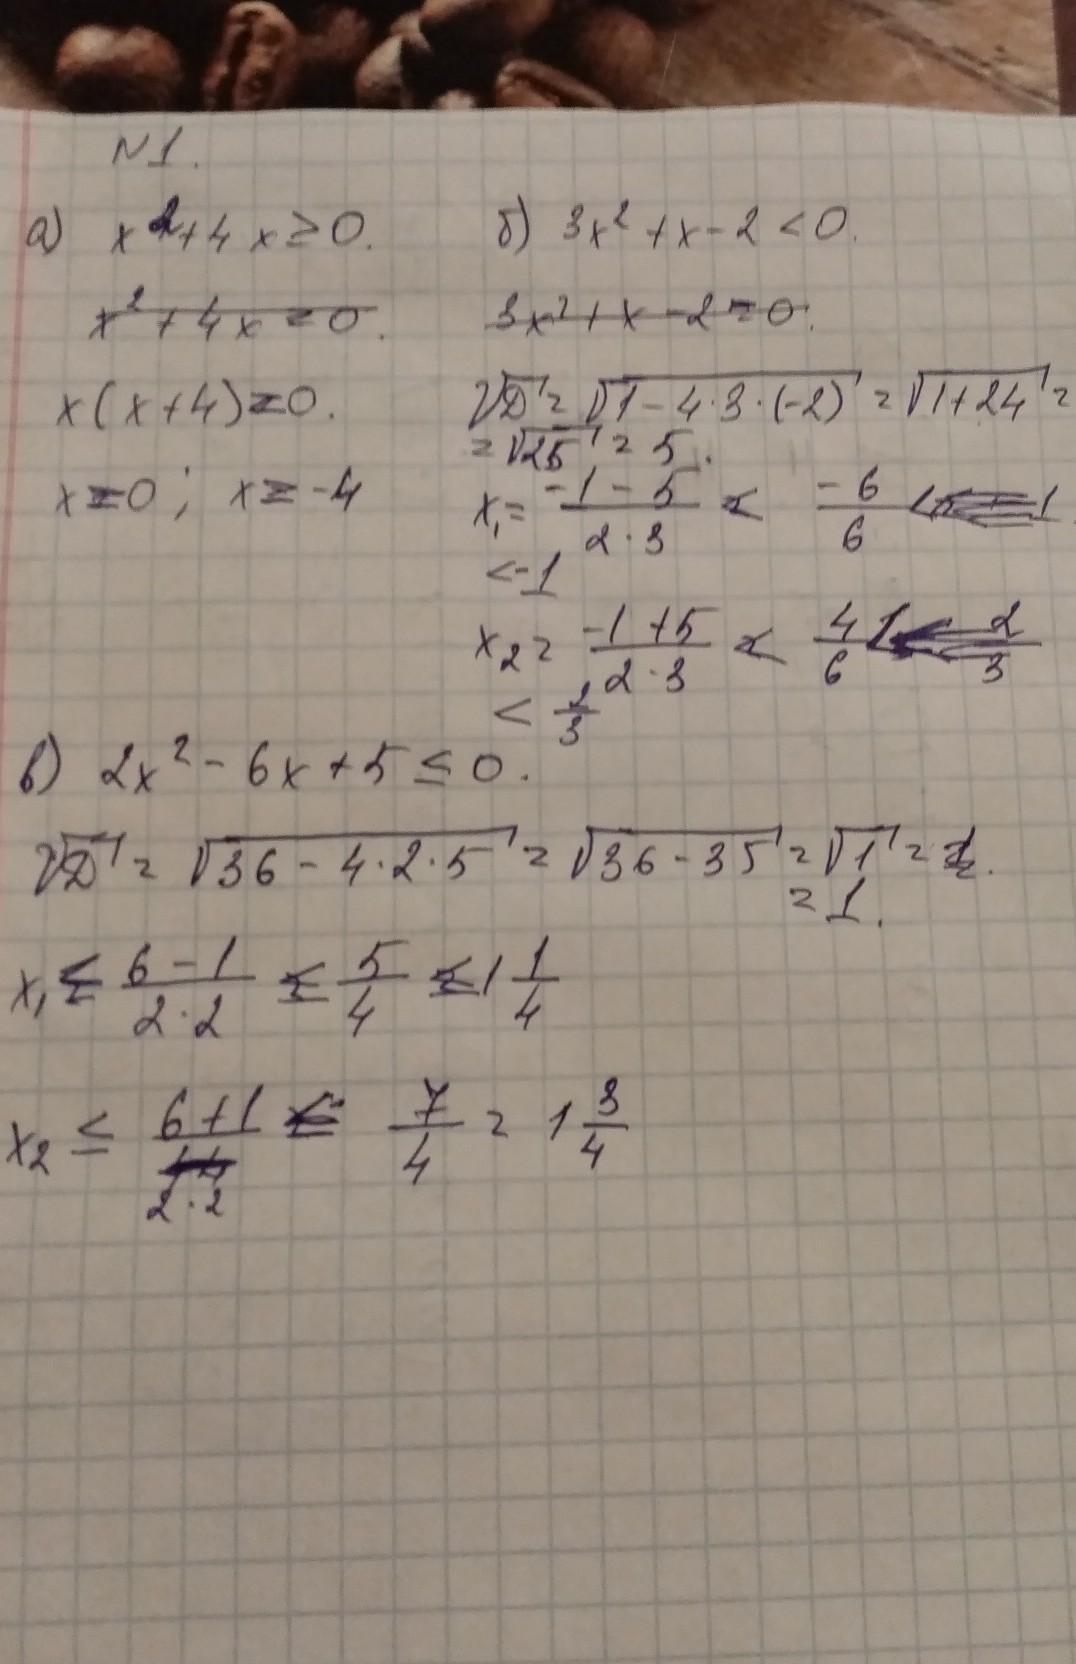 N1.
а) x²+4x≥0.
x²+4x=0.
x(x+4)≥0.
x≥0; x≥-4
б) 3x²+x-2<0.
3x²+x-2=0.
√D=√1-4·3·(-2)=√1+24=
=√25=5.
x₁=-1-5/2·3<-6/6
<-1
x₂=-1+5/2·3<4/6
<2/3
в) 2x²-6x+5≤0.
√D=√36-4·2·5=√36-35=√1=
=1.
x₁≤6-1/2·2≤5/4≤1 1/4
x₂≤6+1/2·2≤7/4=1 3/4